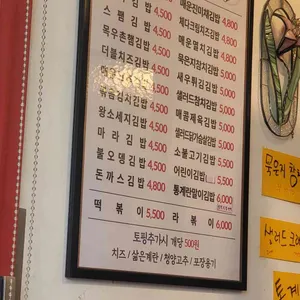 스 팸 김 밥 4,500
목우촌햄김밥 4,500
더블치즈김밥 4,500
볶음김치김밥 4,500
왕소세지김밥 4,500
마 라 김 밥 4,500
불 오 뎅 김 밥 4,500
돈 까 스 김 밥 4,800
매운진미채김밥 4,800
체다크림치즈김밥 4,800
매 운 멸 치 김 밥 4,800
묵은지참치김밥 5,000
새우튀김김밥 5,000
샐러드참치김밥 5,000
매콤제육김밥 5,000
샐러드닭가슴살김밥 5,000
소불고기김밥 5,500
어린이김밥 5,500
통계란말이김밥 6,000
떡 볶 이 5,500
라 볶 이 6,000
토핑추가시 개당 500원
치즈 / 삶은계란 / 청양고추 / 포장용기
묵은지 참
샐러드